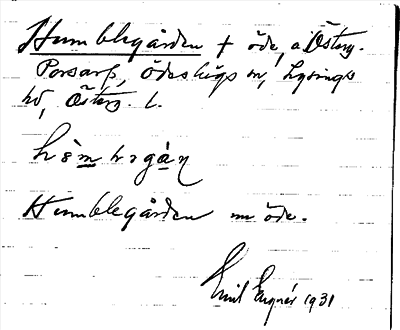 Humblegården † öde, a Österg.
Porsarp, Ödeshögs sn, Lysings
hd, Österg. l.
Humblegården nu öde.
Emil Engnér 1931